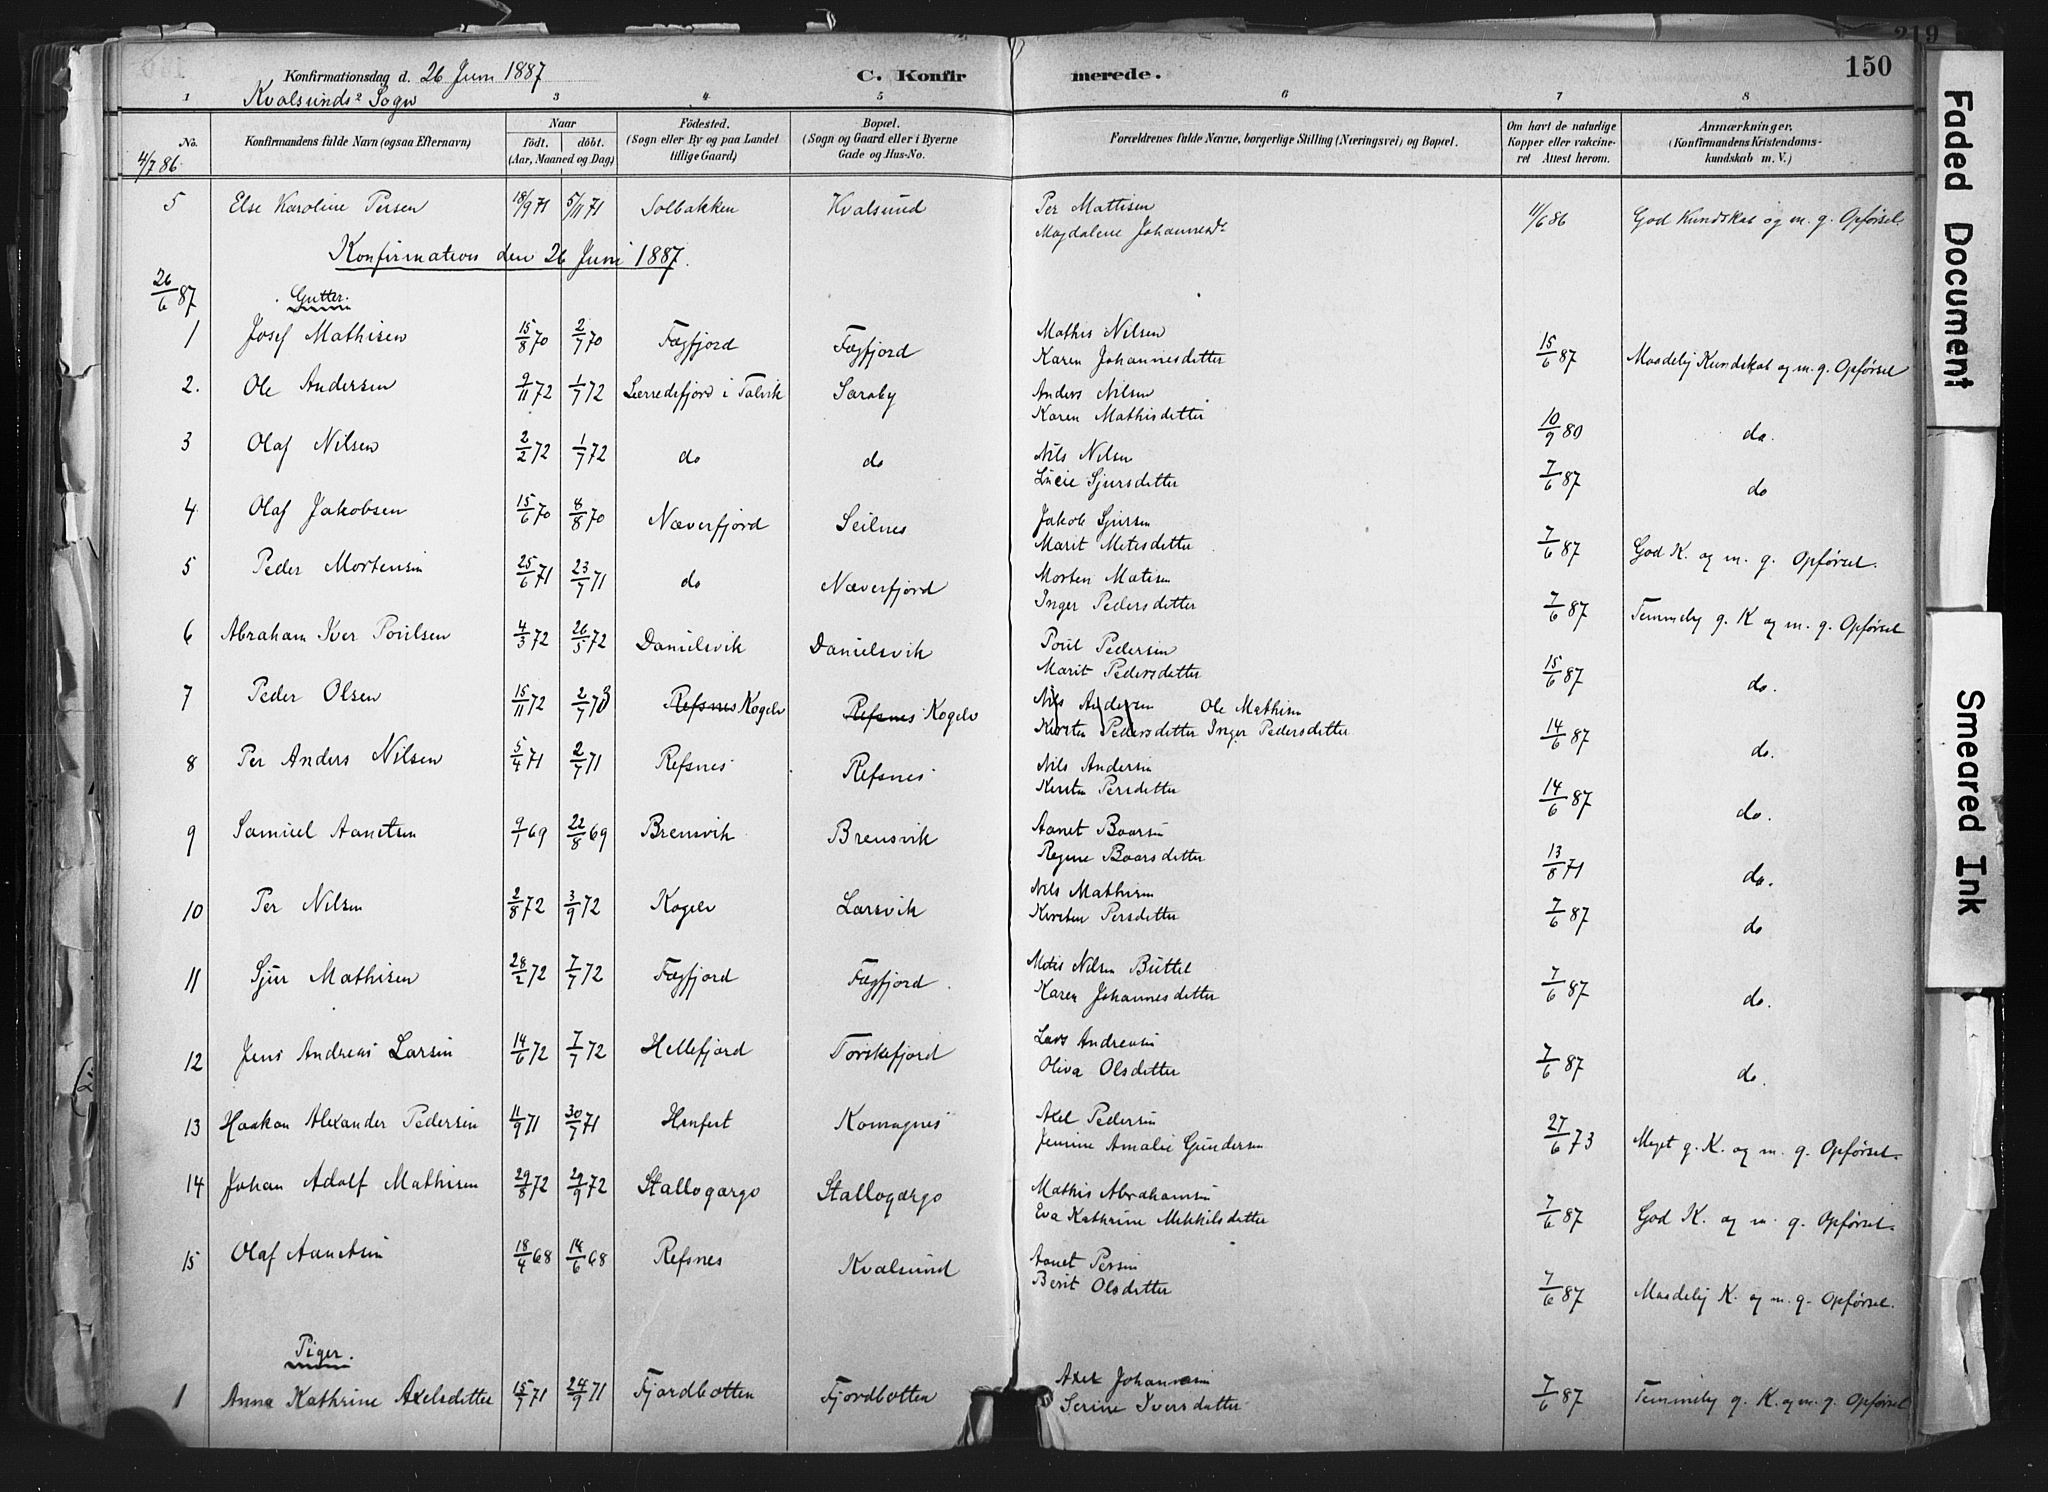 219
150
Konfirmationsdag d. 26 Juni 1887
C. Konfirmerede.
Kvalsunds Sogn
1 3 4 5 6 7 8
No.
Konfirmandens fulde Navn (ogsaa Efternavn)
Naar
født. døbt.
(Aar, Maaned og Dag)
Fødested.
(Sogn eller By og paa Landet
tillige Gaard)
Bopæl.
(Sogn og Gaard eller i Byerne
Gade og Hus-No.
Forældrenes fulde Navne, borgerlige Stilling (Næringsvei) og Bopæl.
Om havt de naturlige
Kopper eller vakcine-
ret Attest herom.
Anmærkninger.
(Konfirmandens Kristendoms-
kundskab m. V.)
4/7 86.
5 Else Karoline Persen 18/9 71 5/11 71 Solbakken Kvalsund Per Mattisen 11/6 86 God Kundskab og m. g. Opførsel.
Magdalene Johannesdt
Konfirmation den 26 Juni 1887.
26/6 87 Gutter.
1 Josef Mathisen 15/8 70 2/7 70 Fægfjord Fægfjord Mathis Nilsen
Karen Johannesdetter 15/6 87 Maadelig Kundskab og m. g. Opførsel
2. Ole Andersen 9/11 72 1/7 72 Lerredsfjord i Talvik Saraby Anders Nilsen
Karen Mathisdetter 10/9 80 do.
3 Olaf Nilsen 2/2 72 1/7 72 do do Nils Nilsen
Lucie Sjursdetter 7/6 87 do
4 Olaf Jakobsen 15/6 70 8/8 70 Næverfjord Seilnes Jakob Sjursen
Marit Metisdetter 7/6 87 God K. og m. g. Opførsel.
5 Peder Mortensen 25/6 71 23/7 71 do Næverfjord Morten Matisen
Inger Pedersdetter 7/6 87 Temmelig g. K og m. g. Opførsel
6 Abraham Iver Poulsen 4/3 72 26/5 72 Danielsvik Danielsvik Poul Pedersen
Marit Pedersdetter 15/6 87 do.
7 Peder Olsen 15/11 72 2/7 73 Refsnes Kogelv Refsnes Kogelv Nils Andersen Ole Mathisen
Kirsten Pedersdetter Inger Pedersdetter 14/6 87 do.
8 Per Anders Nilsen 5/4 71 2/7 71 Refsnes Refsnes Nils Andersen
Kirsten Persdetter 14/6 87 do.
9 Samuel Aanetsen 9/1 69 22/8 69 Brensvik Brensvik Aanet Baarsen
Regine Baarsdetter 13/8 71 do.
10 Per Nilsen 2/8 72 3/9 72 Kogelv Larsvik Nils Mathisen
Kirsten Persdetter 7/6 87 do
11 Sjur Mathisen 28/2 72 7/7 72 Fægfjord Fægfjord Matis Nilsen Buttel
Karen Johannesdetter 7/6 87 do.
12 Jens Andreas Larsen 14/6 72 7/7 72 Hellefjord Torskefjord Lars Andreasen
Oliva Olsdetter 7/6 87 do.
13 Haakon Alexander Pedersen 11/9 71 30/7 71 Hmfest Komagnes Axel Pedersen
Jenine Amalie Gundersen 27/6 73 Meget g. K. og m. g. Opførsel.
14 Johan Adolf Mathisen 29/8 72 29/9 72 Stallogargo Stallogargo Mathis Abrahamsen
Eva Kathrine Mikkelsdetter 7/6 87 God K. og m. g. Opførsel.
15 Olaf Aanetsen 18/4 68 14/6 68 Refsnes Kvalsund Aanet Persen
Berit Olsdetter 7/6 87 Maadelig K. og m. g. Opførsel.
Piger.
1 Anna Kathrine Axelsdetter 15/7 71 24/9 71 Fjordbotten Fjordbotten Axel Johannesen
Serine Iversdatter 7/6 87 Temmelig g. K. og m. g. Opførsel
Faded Document
Smeared Ink